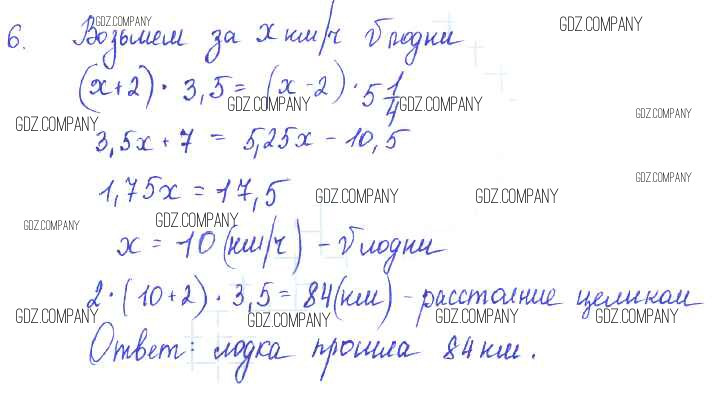 GDZ.COMPANY
6. Возьмем за x км/ч v лодки
GDZ.COMPANY
(x+2) · 3,5 = (x-2) · 5 1/4
GDZ.COMPANY GDZ.COMPANY
GDZ.COMPANY GDZ.COMPANY
3,5x + 7 = 5,25x - 10,5
GDZ.COMPANY
1,75x = 17,5
GDZ.COMPANY GDZ.COMPANY
GDZ.COMPANY GDZ.COMPANY
x = 10 (км/ч) - v лодки
2 · (10+2) · 3,5 = 84 (км) - расстояние целиком
GDZ.COMPANY GDZ.COMPANY GDZ.COMPANY GDZ.COMPANY
Ответ: лодка прошла 84 км.